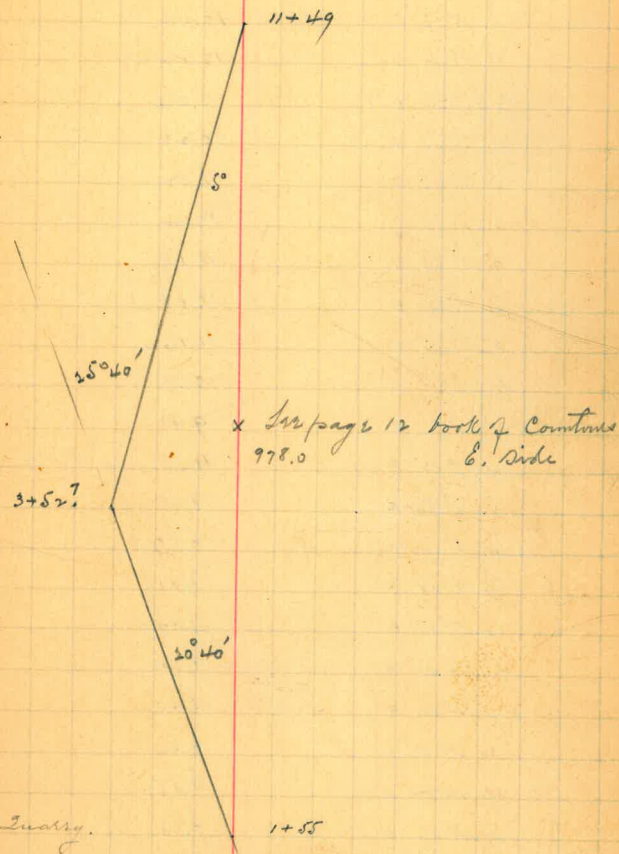 11+49
5°
25°40'
x See page 12 book of Contours
978.0 E. Side
3+52?
20°40'
Quarry.
1+55